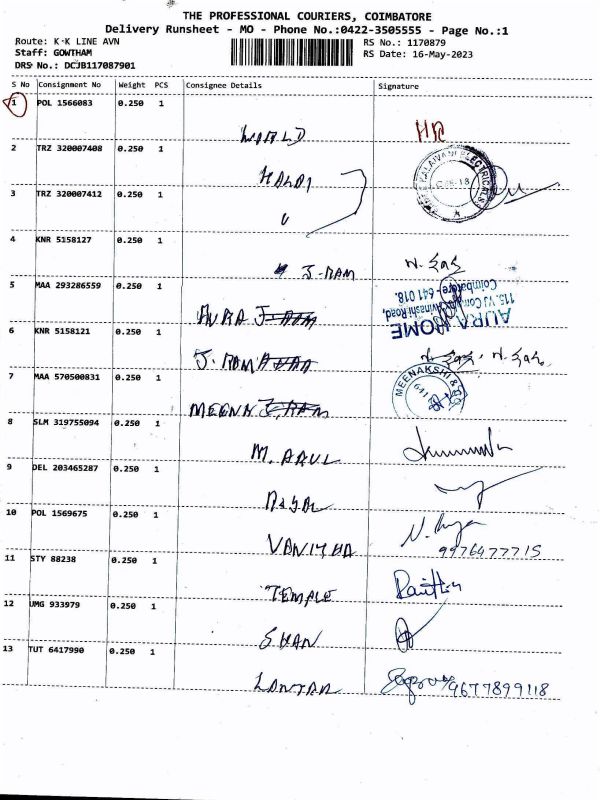 THE PROFESSIONAL COURIERS, COIMBATORE
Delivery Runsheet - MO - Phone No.:0422-3505555 - Page No.:1
Route: K-K LINE AVN RS No.: 1170879
Staff: GOWTHAM RS Date: 16-May-2023
DRS No.: DCJB117087901
S No Consignment No Weight PCS Consignee Details Signature
1 POL 1566083 0.250 1
WORLD
2 TRZ 320007408 0.250 1
HALDI
KALAIVANI ELECTRICALS
3 TRZ 320007412 0.250 1
4 KNR 5158127 0.250 1
J-RAM
5 MAA 293286559 0.250 1
AURA
AURA HOME
115, VJ Com
Avinashi Road,
Coimbatore - 641 018.
6 KNR 5158121 0.250 1
J. RAM
7 MAA 570500831 0.250 1
MEENA
MEENAKSHI & CO
8 SLM 319755094 0.250 1
M. ARUL
9 DEL 203465287 0.250 1
10 POL 1569675 0.250 1
VANITHA
9976477715
11 STY 88238 0.250 1
TEMPLE
12 UMG 933979 0.250 1
SHAN
13 TUT 6417990 0.250 1
9677899118